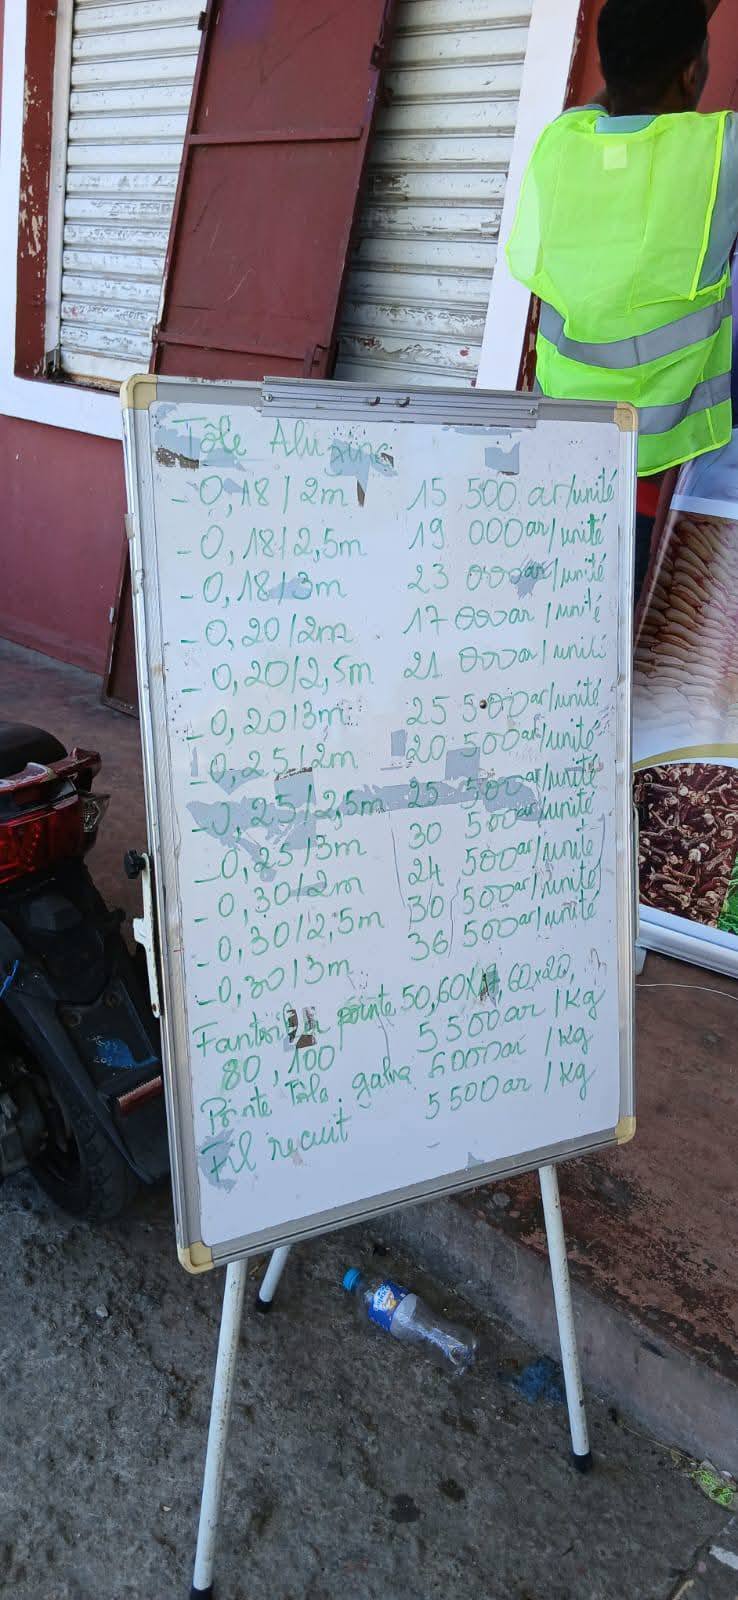 Tôle Aluzinc
- 0,18/2m 15 500 ar/unité
- 0,18/2,5m 19 000ar/unité
- 0,18/3m 23 000ar/unité
- 0,20/2m 17 000ar/unité
- 0,20/2,5m 21 000ar/unité
- 0,20/3m 25 500ar/unité
- 0,25/2m 20 500ar/unité
- 0,25/2,5m 25 500ar/unité
- 0,25/3m 30 500ar/unité
- 0,30/2m 24 500ar/unité
- 0,30/2,5m 30 500ar/unité
- 0,30/3m 36 500ar/unité
pointe 50, 60x17, 60x20,
80, 100 5 500ar/kg
Pointe Tôle galva 6000ar/kg
Fil recuit 5 500ar/kg